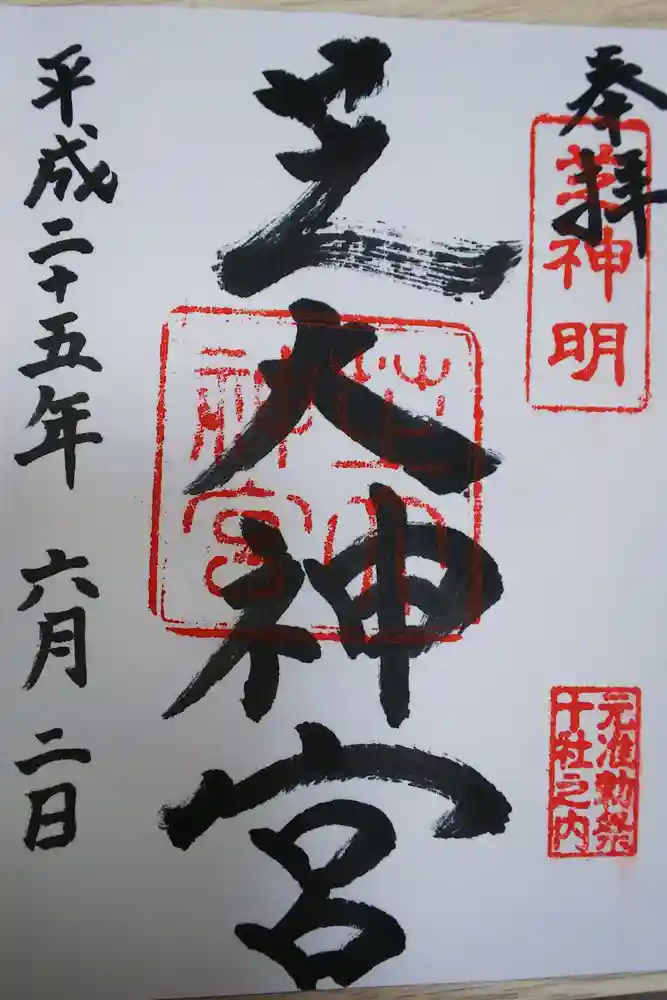 奉拝
芝神明
元准勅祭
十社之内
芝大神宮
芝大神宮
平成二十五年 六月 二日